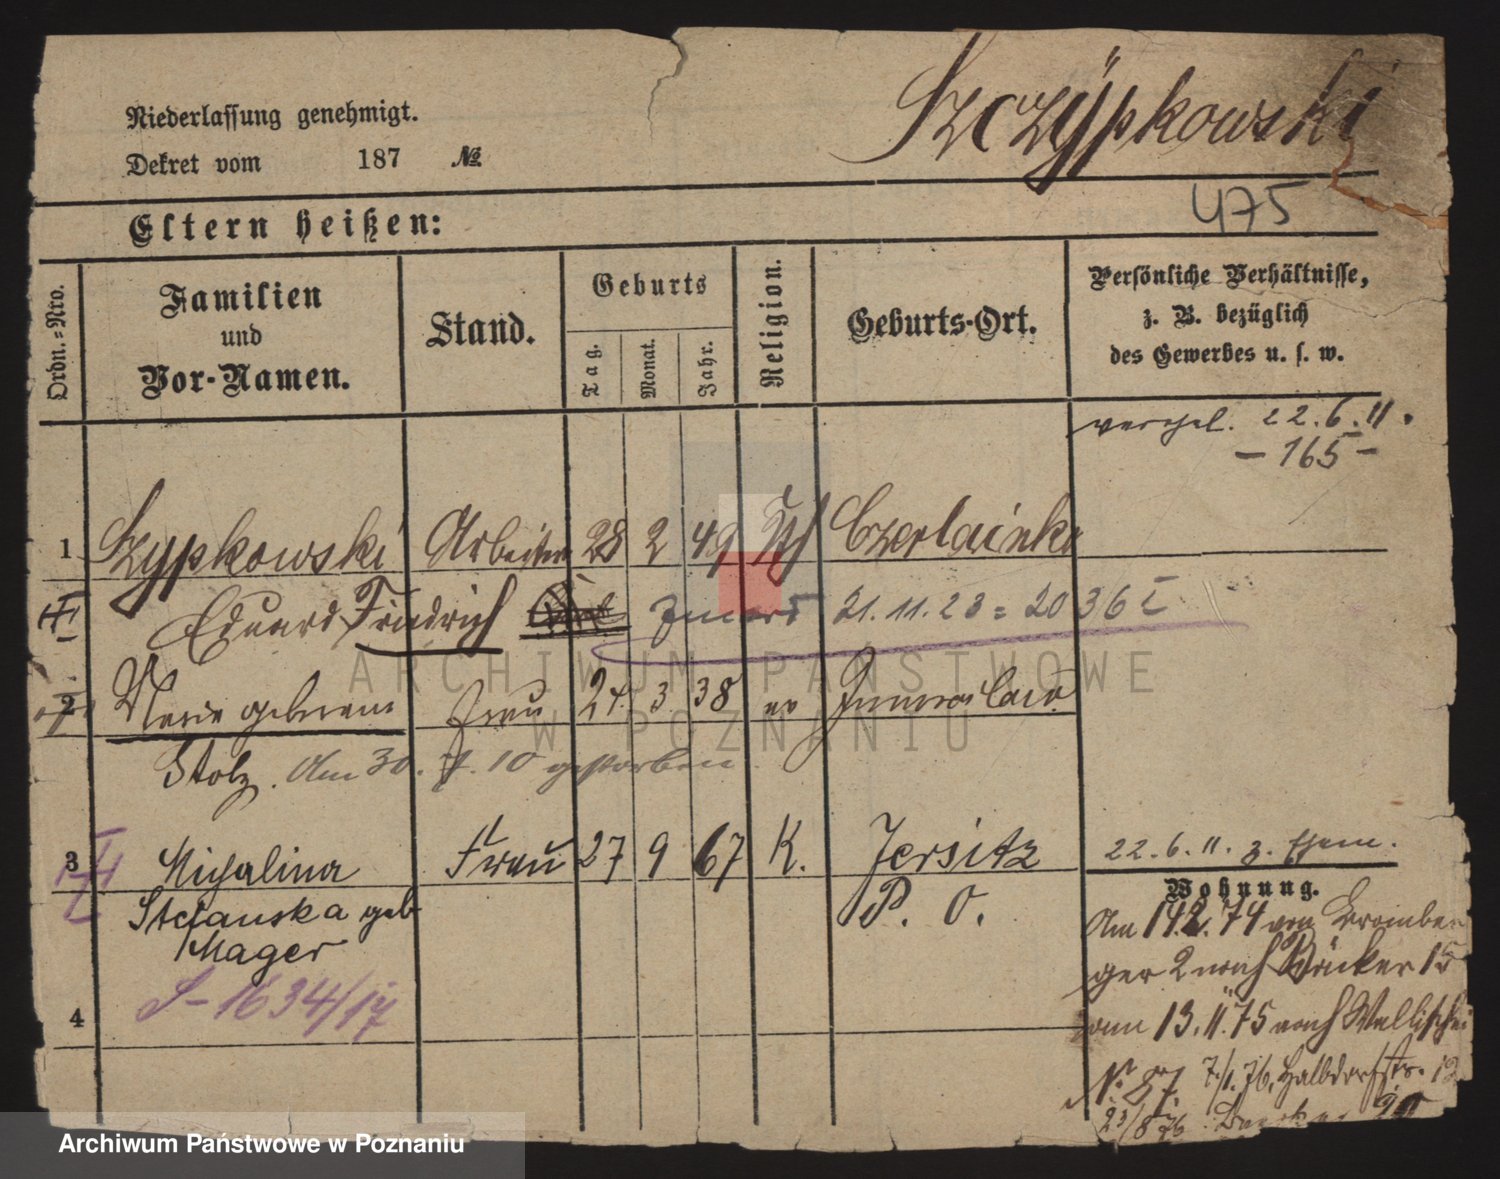 Szczÿpkowski
Niederlassung genehmigt.
Dekret vom 187 №
475
Eltern heißen:
Ordn.-Nro.
Familien
und
Vor-Namen.
Stand.
Geburts
Tag.
Monat.
Jahr.
Religion.
Geburts-Ort.
Persönliche Verhältnisse,
z. B. bezüglich
des Gewerbes u. s. w.
22.6.11.
- 165 -
1 Szypkowski Arbeiter 28 2 49 Czerlainko
Eduard Friedrich 21.11.23 = 2036 I
2 Marie geborene Frau 24. 3 38 ev
Stolz. Am 30. 7. 10 gestorben.
3 Michalina Frau 27 9 67 K. Jersitz
22.6.11. z. Ehem.
Stefanska geb P. O.
Mager
S-1634/17
4
Wohnung.
Am 14.2.74 von Bromber
ger 2 nach Bäcker 15
am 13.11.75 nach Wallischei
N. 87. 7./1.76, Halbdorfstr. 12
23/8 76
ARCHIWUM PAŃSTWOWE
W POZNANIU
Archiwum Państwowe w Poznaniu